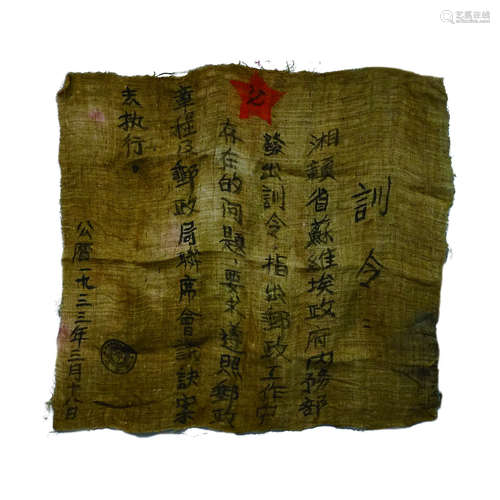 艺典在线
訓令
湘贛省蘇維埃政府内務部
發出訓令指出郵政工作中
存在的问題,要求遵照郵政
章程及郵政局聯席會議訣案
去执行。
公曆一九三三年三月日